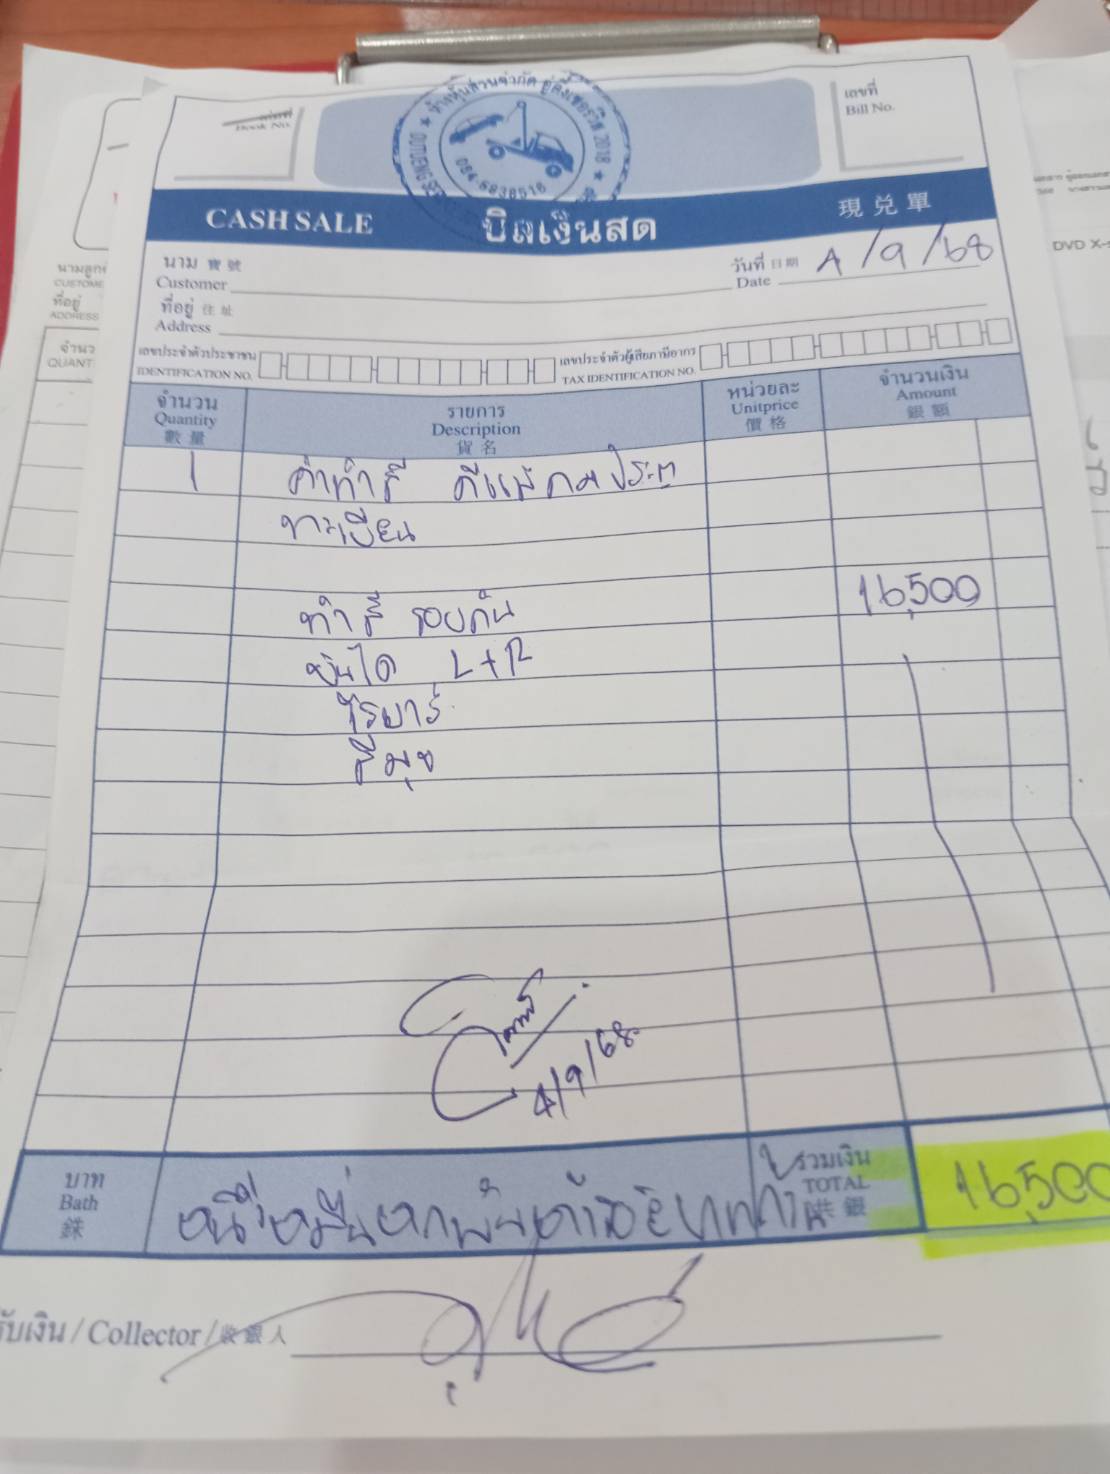 เล่มที่
Book No.
ห้างหุ้นส่วนจำกัด อู่ต้ึงเซอร์วิส 2018
084-6838516
เลขที่
Bill No.
CASH SALE บิลเงินสด 現兌單
นาม 寶號
Customer
วันที่ 日期 4/9/68
Date
ที่อยู่ 住址
Address
เลขประจำตัวประชาชน
IDENTIFICATION NO.
เลขประจำตัวผู้เสียภาษีอากร
TAX IDENTIFICATION NO.
จำนวน
Quantity
數量
รายการ
Description
貨名
หน่วยละ
Unitprice
價格
จำนวนเงิน
Amount
銀額
1 ค่าทำสี
ทะเบียน
ทำสี รอบคัน 16,500
บันได L+R
โรบาร์
สีมุข
4/9/68
บาท
Bath
銖
หนึ่งหมื่นหกพันห้าร้อยบาทถ้วน
รวมเงิน
TOTAL
共銀
16,500
รับเงิน / Collector / 收銀人
นามลูกค้า
CUSTOME
ที่อยู่
ADDRESS
จำนว
QUANT
DVD X-